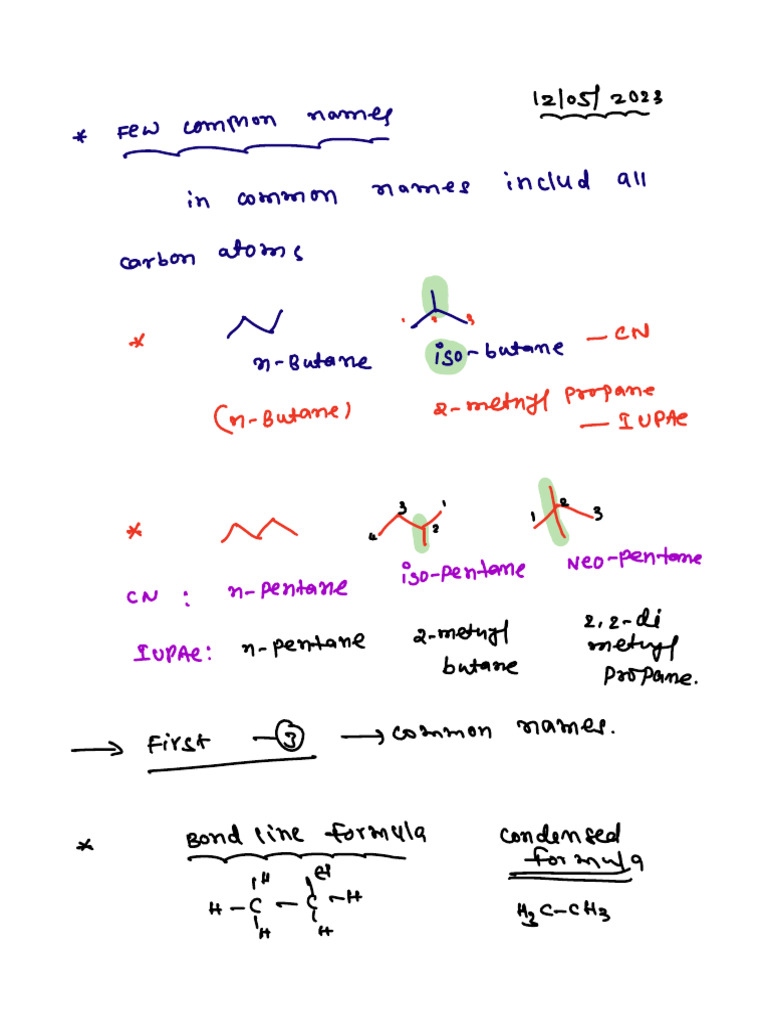 12/05/2023
* Few common names
in common names includ all
carbon atoms
*
1 2 3
n-Butane iso-butane — CN
(n-Butane) 2-methyl propane
— IUPAC
*
4 3 2 1 1 2 3
CN : n-pentane iso-pentane Neo-pentane
IUPAC: n-pentane 2-methyl butane 2,2-di methyl propane.
→ First — 3 → common names.
* Bond line formula Condensed formula
H
H – C – C – H
H H
H3C–CH3